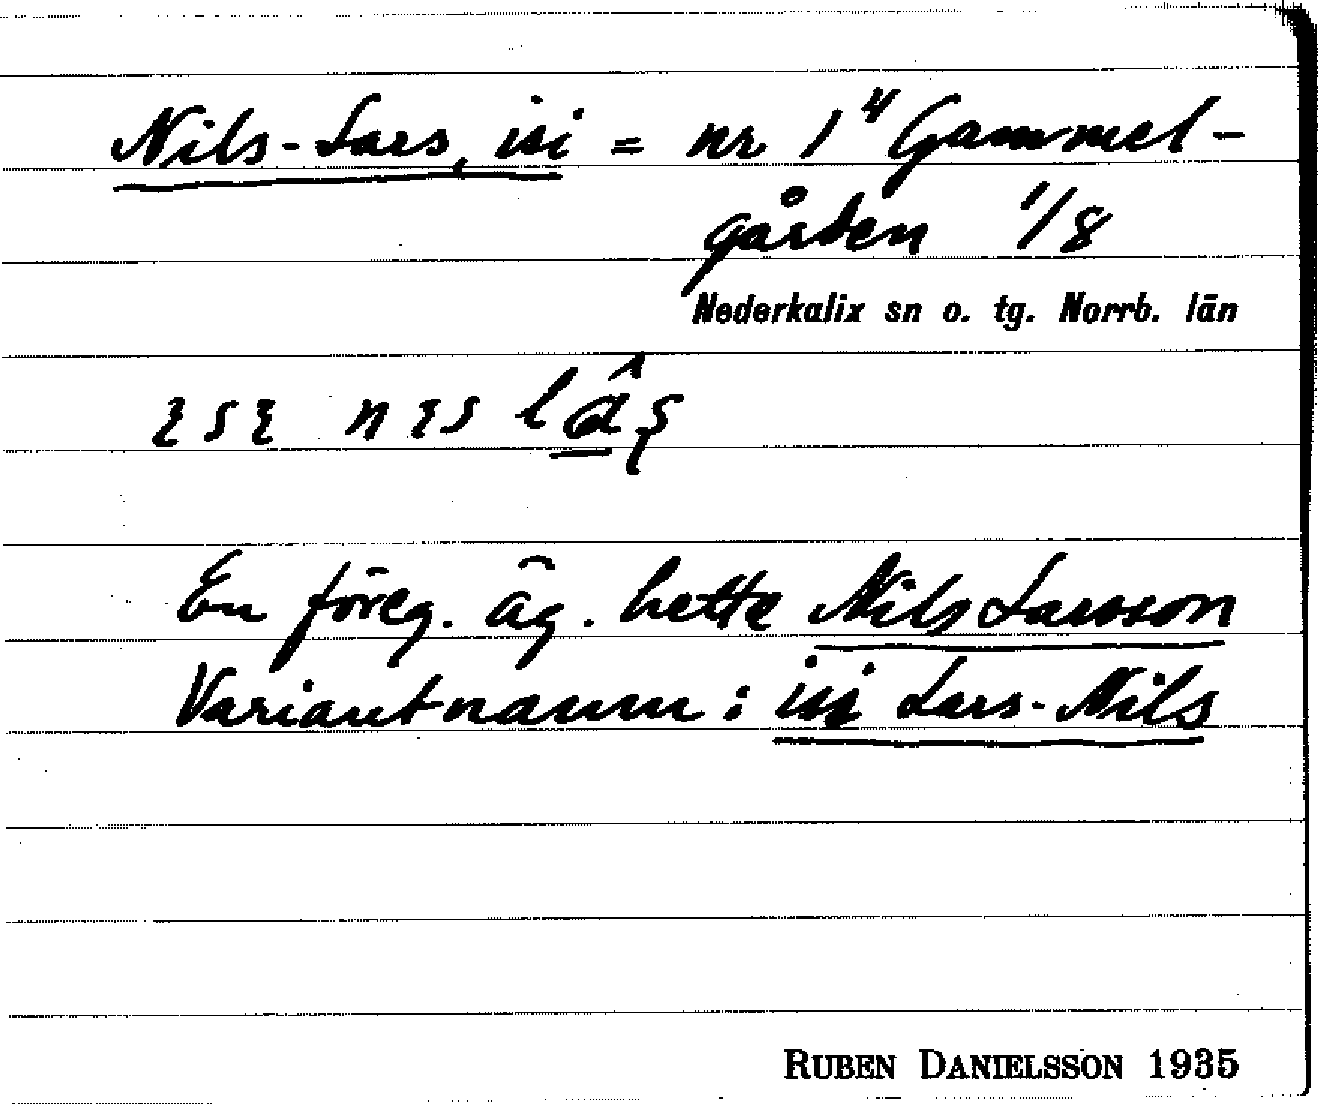 Nils-Lars, isi = nr 1⁴ Gammel-
gården 1/8
Nederkalix sn o. tg. Norrb. län
En föreg. äg. hette Nils Larsson
Variantnamn: isi Lars-Nils
RUBEN DANIELSSON 1935